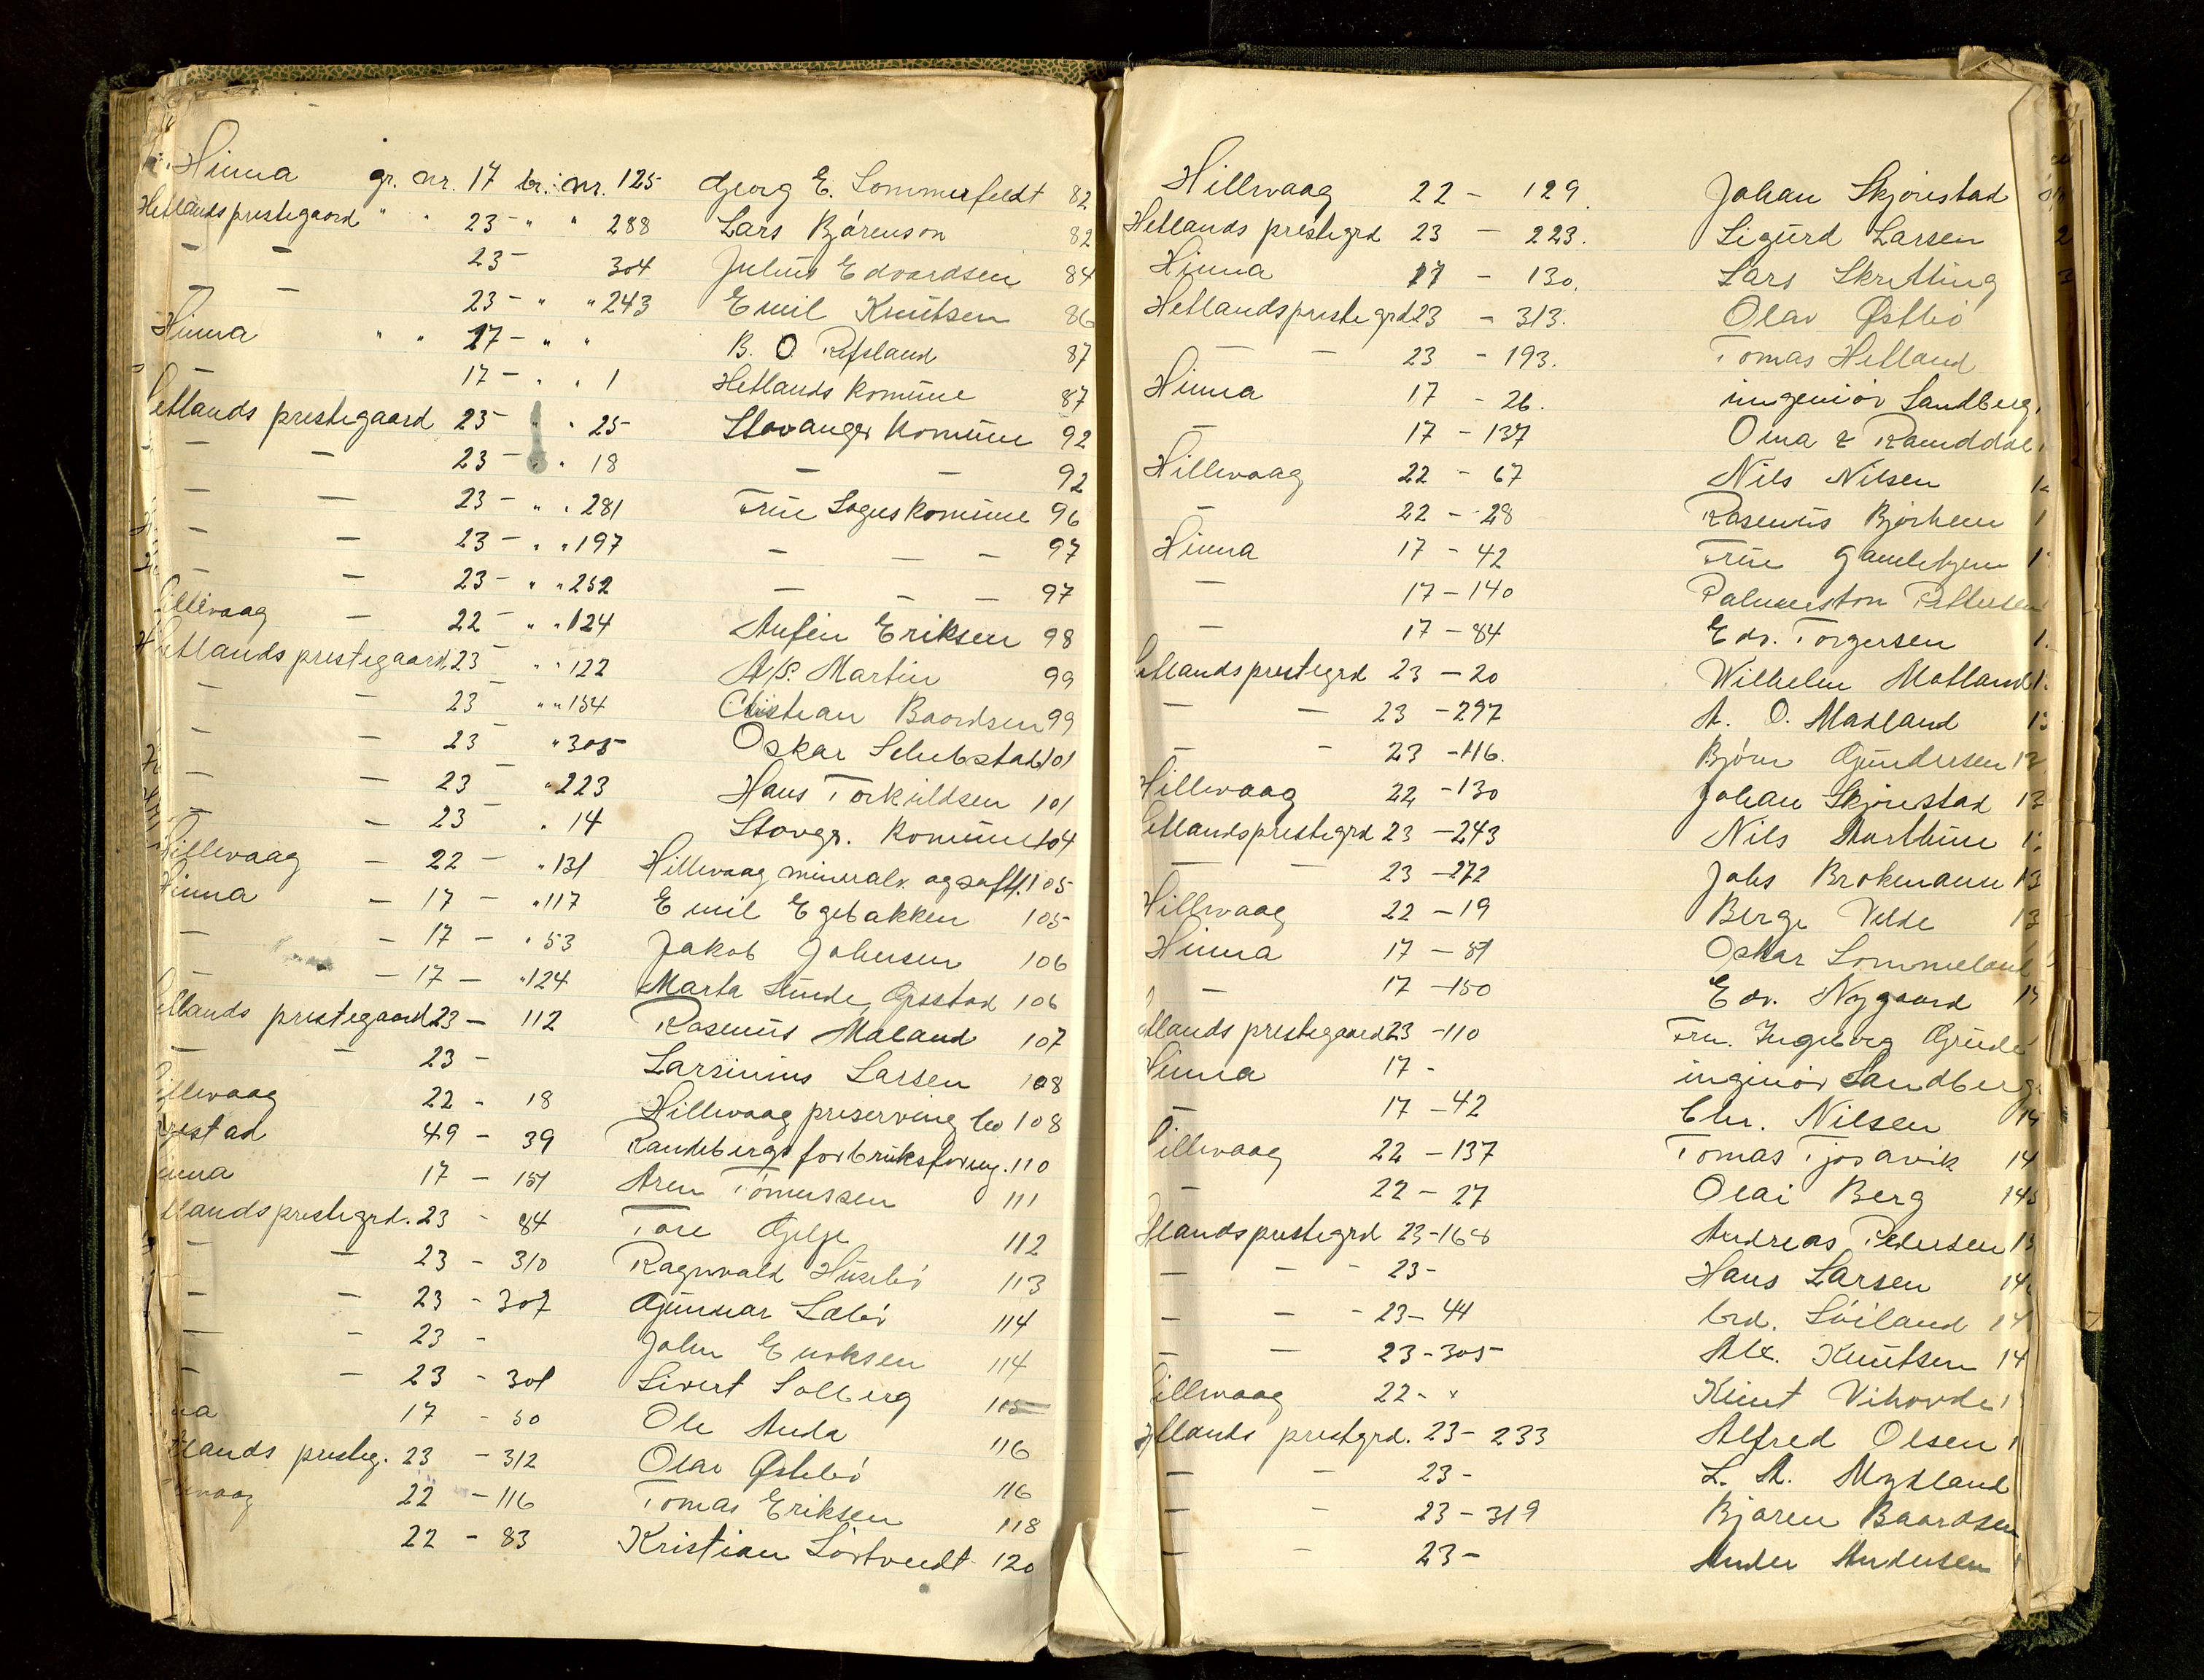 Hinna gr. nr. 17 br. nr. 125 Georg E. Sommerfeldt 82
Hetlands prestegaard " " 23 - " " 288 Lars Bjørenson 82
- - 23 - 304 Julius Edvardsen 84
- - 23 - " " 243 Emil Knutsen 86
Hinna " " 17 - " " B. O. Refsland 87
- 17 - " " 1 Hetlands komune 87
etlands prestegaard 23 - " " 25 Stavanger komune 92
- - 23 - " " 18 - - 92
- - 23 - " " 281 Frue komune 96
- - 23 - " " 197 - - - 97
- - 23 - " " 252 - - - 97
illevaag - 22 - " " 124 Anfin Eriksen 98
Hetlands prestegaard 23 - " " 122 Martin 99
- - 23 " " 154 Christian Baardsen 99
- - 23 - " 305 Oskar 101
- - 23 - " 223 Hans Torkildsen 101
- - 23 - " 14 Stavgr. komune 104
Hillevaag - 22 - " 131 Hillevaag mineralv. og saftf. 105
Hinna - 17 - " 117 Emil Egebakken 105
- - 17 - " 53 Jakob Johnsen 106
- - 17 - " 124 Marta Sunde, Opstad 106
etlands prestegaard 23 - 112 Rasmus Maland 107
- - 23 - Larsinius Larsen 108
illevaag 22 - 18 Hillevaag preserving Co 108
estad 49 - 39 Randebergs forbruksforeng. 110
inna 17 - 151 Aren Tomessen 111
tlands prestegrd. 23 - 84 Tore Gjelje 112
- - 23 - 310 Ragnvald Husebø 113
- - 23 - 307 Gunnar 114
- - 23 - John Enoksen 114
- - 23 - 301 Sivert Solberg 115
na 17 - 50 Ole Auda 116
etlands presteg. 23 - 312 Olav Østebø 116
evaag 22 - 116 Tomas Eriksen 118
22 - 83 Kristian Sørtvedt 120
Hillevaag 22 - 129. Johan Skjørestad
Hetlands prestegrd 23 - 223. Sigurd Larsen 2
Hinna 17 - 130. Lars Skretting 3
Hetlandsprestegrd 23 - 313. Olav Østbø
- - 23 - 193. Tomas Hetland
Hinna 17 - 26. ingeniør Sandberg.
- 17 - 137 Oma &
Hillevaag 22 - 67 Nils Nilsen
- 22 - 28 Rasmus Bjørheim 1
Hinna 17 - 42 Frue 1
- 17 - 140 Palmeston Pettersen
- 17 - 84 Edv. Torgersen 1
etlands prestegrd 23 - 20 Wilhelm Matland 1
- - 23 - 297 A. O. Madland 13
- - 23 - 116. Bjørn Gundersen 13
Hillevaag 22 - 130 Johan Skjørestad 13
etlandsprestegrd 23 - 243 Nils
- - 23 - 272 Johs Brokmann 13
Hillevaag 22 - 19 Berge Velde 13
Hinna 17 - 81 Oskar Sømmeland
- 17 - 150 Edv. Nygaard 14
etlands prestegaard 23 - 110 Fru. Ingeborg Grude
Hinna 17 - ingeniør Sandberg.
- 17 - 42 Chr. Nilsen 14
Hillevaag 22 - 137 Tomas Tjøsavik 14
- 22 - 27 Olai Berg 145
etlandsprestegrd 23 - 168 Andreas Pedersen
- - - 23 - Hans Larsen 14
- - - 23 - 44 brd. Søiland 14
- - 23 - 305 Alex. Knutsen 14
illevaag 22 - " Knut Vihovde
etlands prestgrd. 23 - 233 Alfred Olsen
- - 23 - L. A. Mydland
- - 23 - 319 Bjaren Baardsen
- - 23 - Andersen